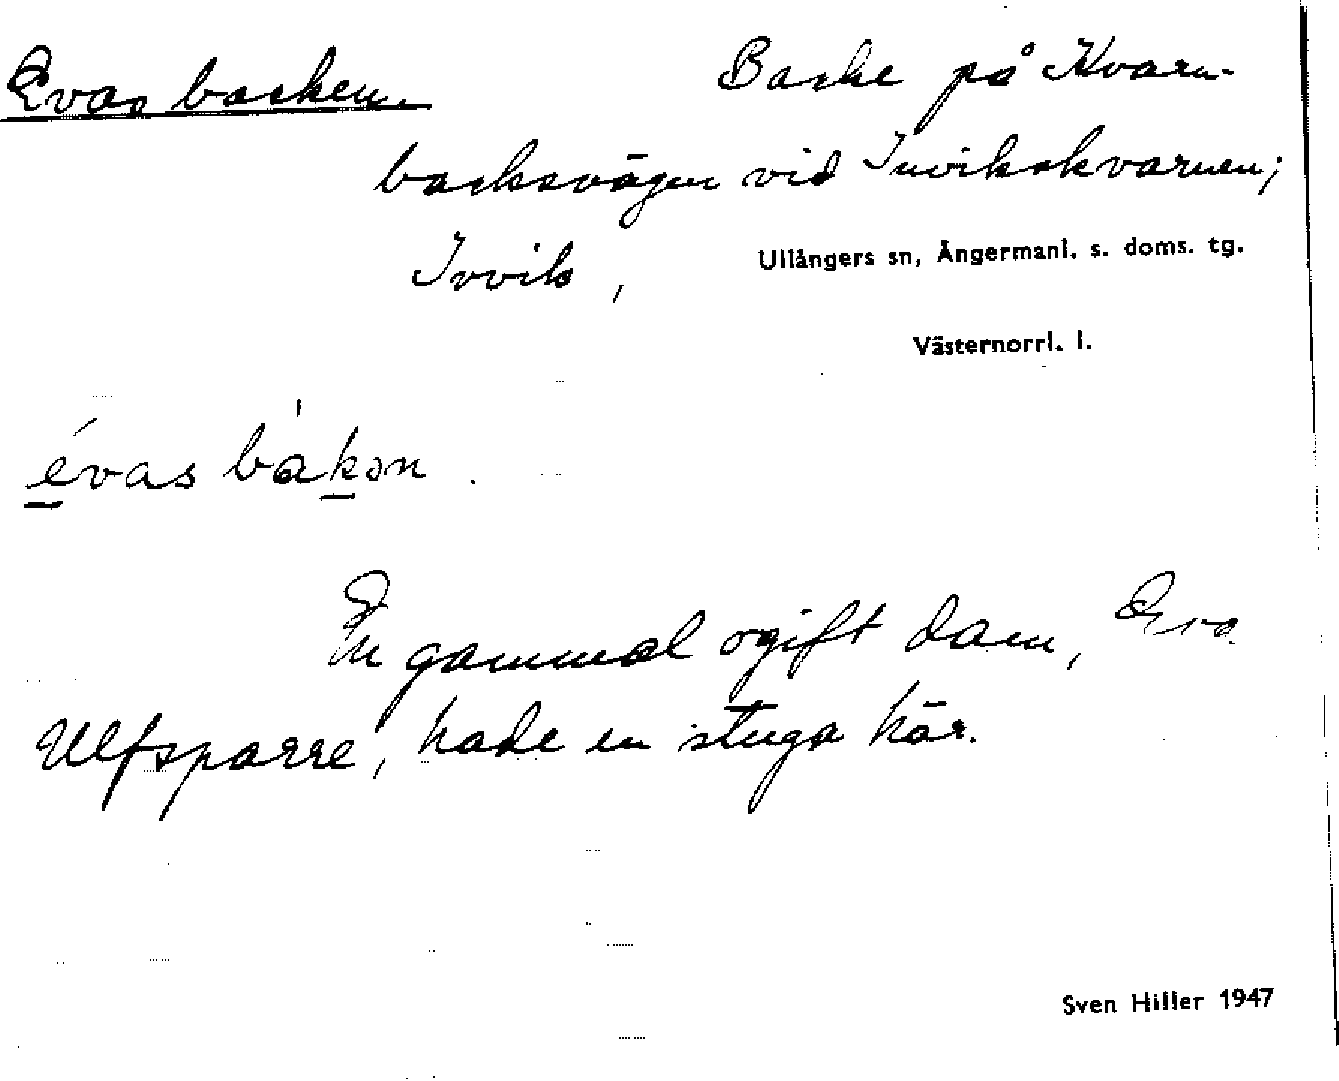 Evas backen. Backe på Kvarn-
backsvägen vid Invikskvarnen;
Invik,
Ullångers sn, Ångermanl. s. doms. tg.
Västernorrl. l.
évas bàkən.
En gammal ogift dam, Eva
Ulfsparre, hade en stuga här.
Sven Hiller 1947